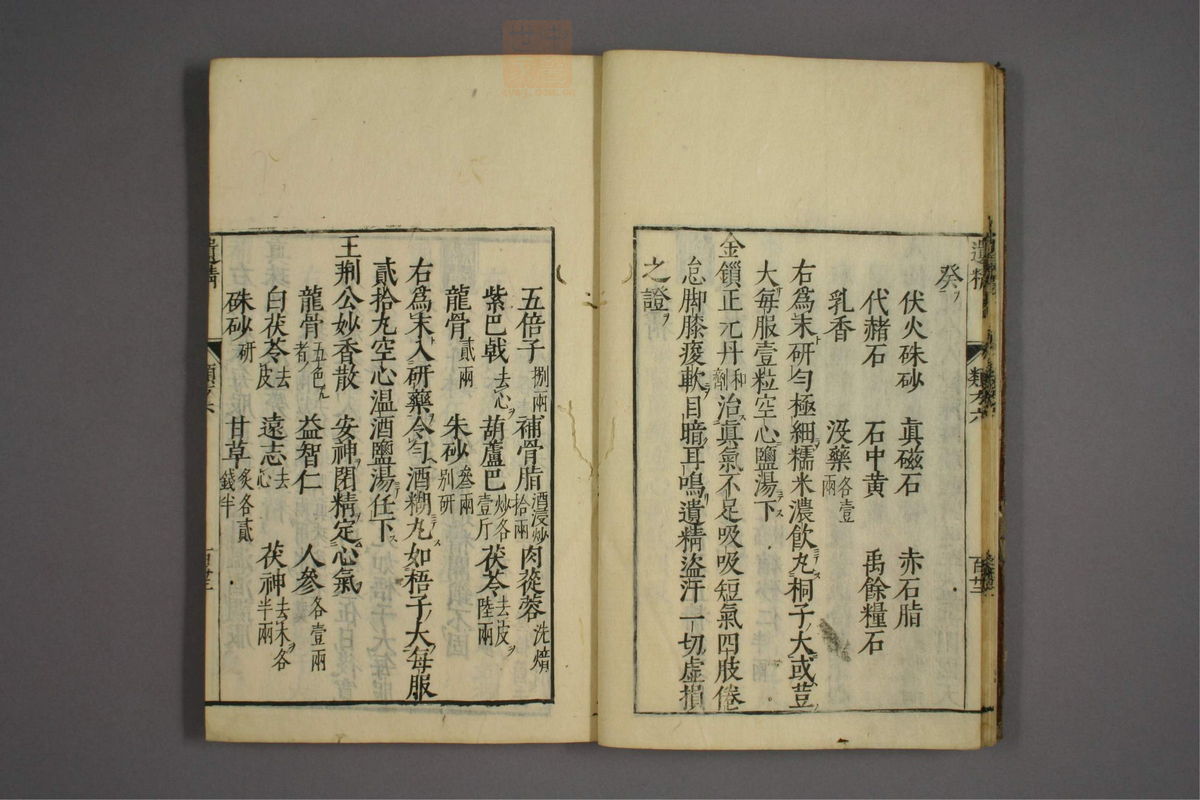 遺精
類方六
百廿三
癸ノ
伏火硃砂　真磁石　赤石脂
代赭石　石中黄　禹餘糧石
乳香　沒藥各壹兩
右爲末研勻極細糯米濃飲丸桐子大或荳
大每服壹粒空心鹽湯下
金鎖正元丹和劑治真氣不足吸吸短氣四肢倦
怠脚膝痠軟目暗耳鳴遺精盜汗一切虛損
之證ヲ
五倍子捌兩　補骨脂酒浸炒拾兩　肉蓯蓉洗焙
紫巴戟去心　葫蘆巴炒各壹斤　茯苓去皮陸兩
龍骨貳兩　朱砂叄兩別研
右爲末入研藥令勻酒糊丸如梧子大每服
貳拾丸空心温酒鹽湯任下
王荊公妙香散　安神閉精定心氣
龍骨五色者　益智仁　人參各壹兩
白茯苓去皮　遠志去心　茯神去木各半兩
硃砂研　甘草炙各貳錢半
遺精
百廿三